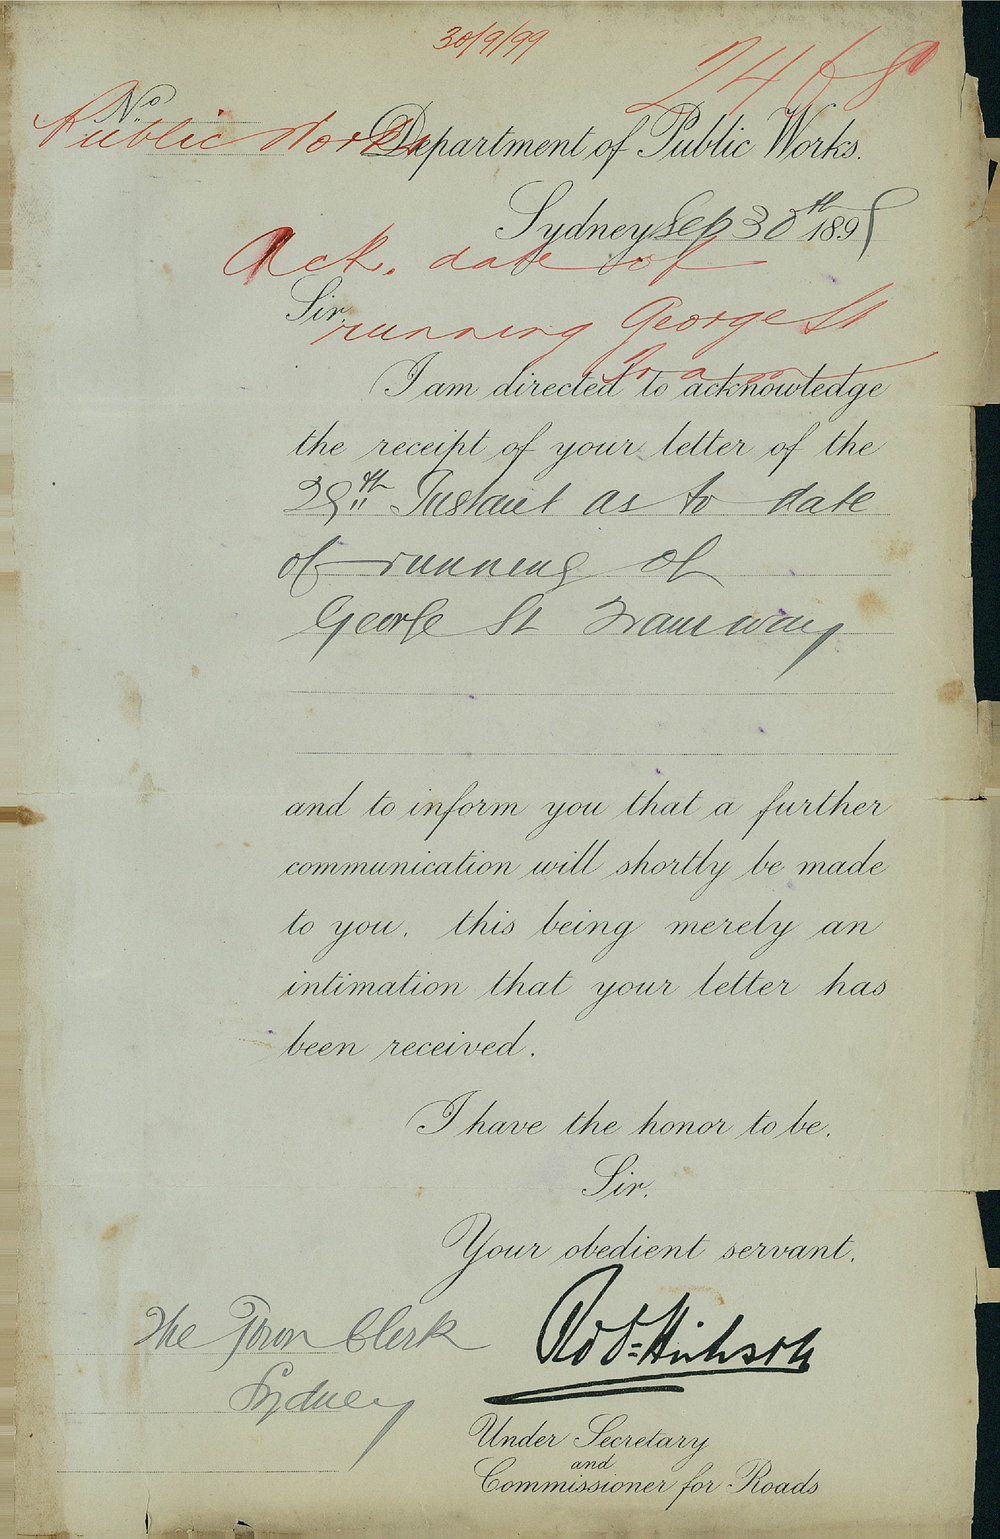 30/9/99
2468
No
Public Works
Department of Public Works.
Sydney Sep 30th 1899
Ack. date of
Sir,
running George St
Tram
I am directed to acknowledge
the receipt of your letter of the
29th Instant as to date
of running of
George St Tramway
and to inform you that a further
communication will shortly be made
to you, this being merely an
intimation that your letter has
been received.
I have the honor to be,
Sir,
Your obedient servant,
The Town Clerk
Sydney
Robt Hickson
Under Secretary
and
Commissioner for Roads